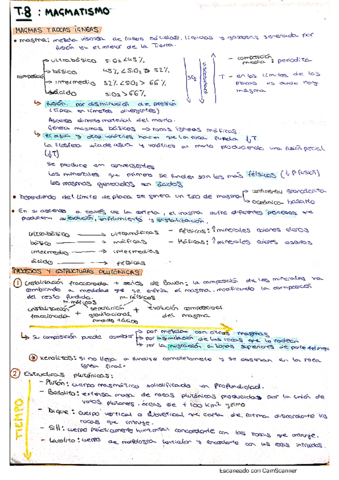 T.8: MAGMATISMO
MAGMAS Y ROCAS ÍGNEAS
• magma: mezcla viscosa de fases sólidas, líquidas y gaseosas generada por
fusión en el interior de la Tierra.
composición
ultrabásico SiO₂<45%
básico 45%<SiO₂<52%
intermedio 52%<SiO₂<66%
ácido SiO₂>66%
composición media: peridotita
T - en los límites de las placas es donde hay magma
fusión por disminución de presión
(típica en límites divergentes)
Asciende material del manto.
Genera magmas básicos → rocas ígneas máficas.
El agua y otros volátiles hacen que la roca funda a ↓T
La litosfera añade agua y volátiles al manto produciendo una fusión parcial
(↓T)
Se produce en convergentes
Los minerales que primero se funden son los más félsicos (↓p fusión)
los magmas generados son ácidos
• Dependiendo del límite de placas se genera un tipo de magma
continental: granodiorita
oceánica: basalto
• En su ascenso a través de la corteza, el magma sufre diferentes procesos
producen evolución, enfriamiento y cristalización.
ultrabásico → ultramáficas
básico → máficas
intermedio → intermedias
ácido → félsicas
- Félsicas: ↑ minerales colores claros
- Máficas: ↑ minerales colores oscuros
PROCESOS Y ESTRUCTURAS PLUTÓNICAS
① Cristalización fraccionada → series de Bowen: la composición de los minerales va
cambiando a medida que se enfría el magma, modificando la composición
del resto fundido.
cristalización fraccionada + separación gravitacional + evolución composicional del magma
Su composición puede cambiar
por mezclas con otros magmas
por asimilación de las rocas que lo rodean
por la migración a zonas superiores
⊗ Xenolitos: si no llega a fundirse completamente y se observan en la roca
ígnea final
② Estructuras plutónicas:
TIEMPO
- Plutón: cuerpo magmático solidificado en profundidad.
- Batolito: extensa masa de rocas plutónicas producidas por la unión de
varios plutones. áreas de +100 km²
- Dique: cuerpo vertical o subvertical que corta de forma discordante las
rocas que intruye.
- Sill: cuerpo prácticamente horizontal concordante con las rocas que intruye.
- Lacolito: cuerpo de morfología lenticular y concordante con las rocas intruidas.
Escaneado con CamScanner